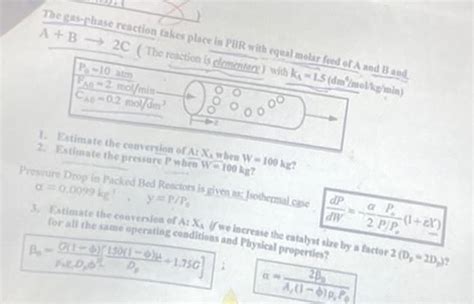 The gas-phase reaction takes place in PBR with equal molar feed of A and B and
A + B → 2C ( The reaction is elementary) with kA = 1.5 (dm⁶/mol/kg/min)
P₀ =10 atm
FA0 = 2 mol/min
CA0 = 0.2 mol/dm³
z
1. Estimate the conversion of A: XA when W = 100 kg?
2. Estimate the pressure P when W = 100 kg?
Pressure Drop in Packed Bed Reactors is given as: Isothermal case
α = 0.0099 kg⁻¹ , y = P/P₀
dP/dW = - α/2 P₀/(P/P₀) (1+εX)
3. Estimate the conversion of A: XA if we increase the catalyst size by a factor 2 (Dp = 2Dp)?
for all the same operating conditions and Physical properties?
β₀ = G(1 - ϕ)/(ρ₀gcDpϕ³) [150(1 - ϕ)μ/Dp + 1.75G] ; α = 2β₀/(Ac(1 - ϕ)ρcP₀)